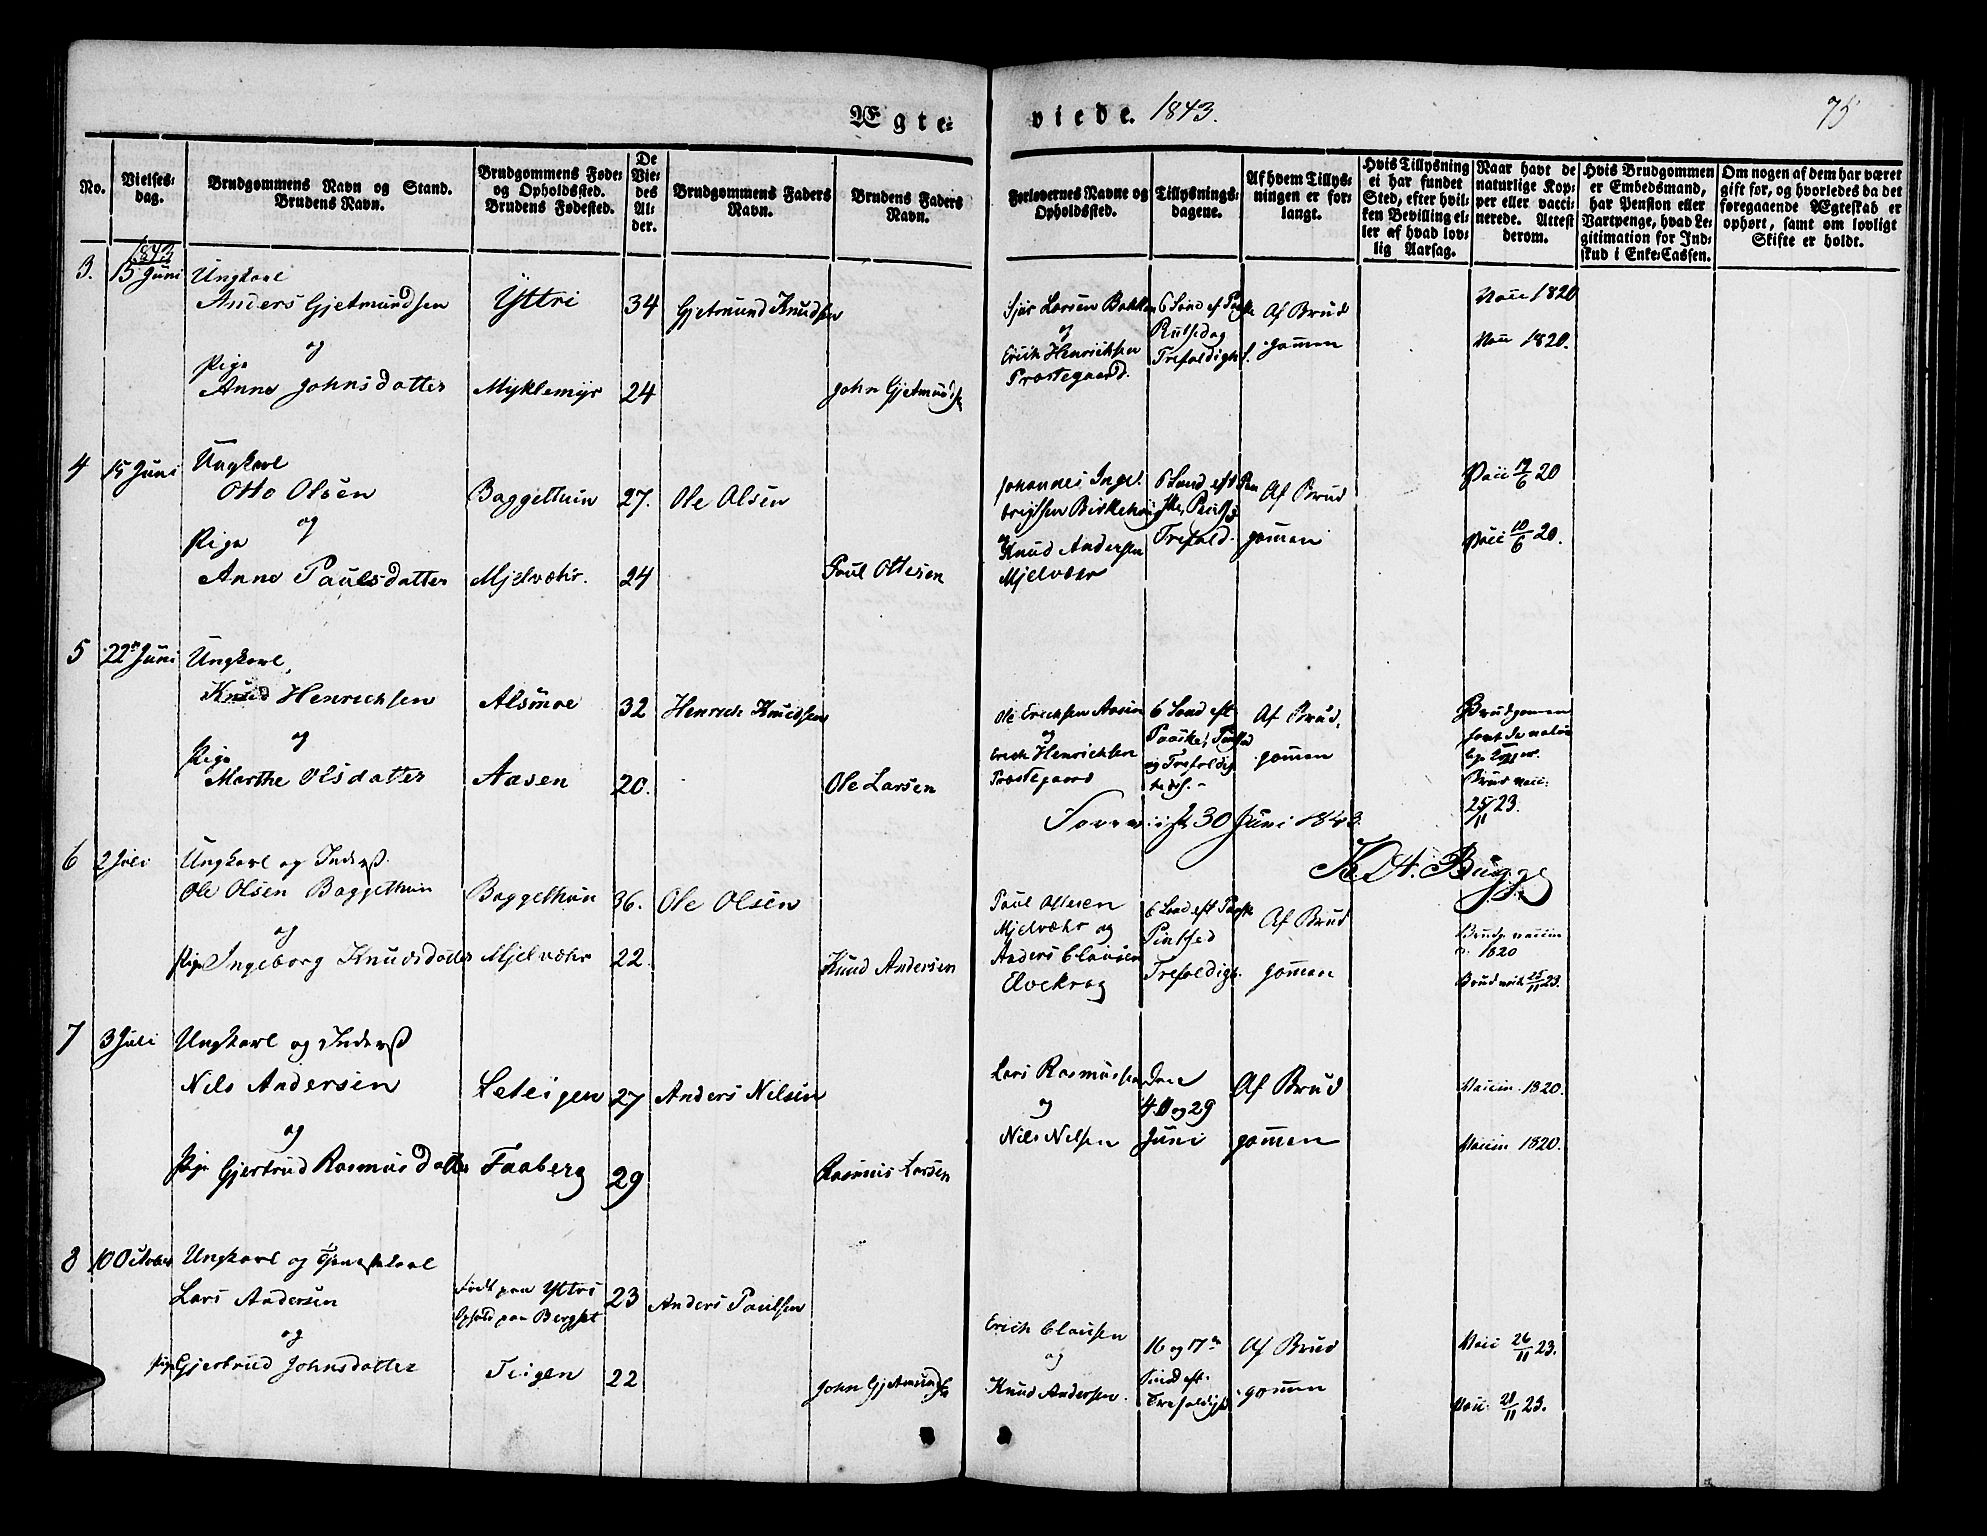 Ægte-
viede. 1843.
75
No.
Vielses-
dag.
Brudgommens Navn og Stand.
Brudens Navn.
Brudgommens Føde-
og Opholdssted.
Brudens Fødested.
De
Vie-
des
Al-
der.
Brudgommens Faders
Navn.
Brudens Faders
Navn.
Forlovernes Navne og
Opholdssted.
Tillysnings-
dagene.
Af hvem Tillys-
ningen er for-
langt.
Hvis Tillysning
ei har fundet
Sted, efter hvil-
ken Bevilling el-
ler af hvad lov-
lig Aarsag.
Naar havt de
naturlige Kop-
per eller vacci-
nerede. Attest
derom.
Hvis Brudgommen
er Embedsmand,
har Pension eller
Vartpenge, hvad Le-
gitimation for Ind-
skud i Enke-Cassen.
Om nogen af dem har været
gift før, og hvorledes da det
foregaaende Ægteskab er
ophørt, samt om lovligt
Skifte er holdt.
1843
3. 15 Juni
Ungkarl
Anders Gjetmundsen
og
Pige
Anne Johnsdatter
Yttri
Myklemyr
34
24
Gjetmund Knudsen
John Gjetmunds
Larsen Bakken
og
Erich Henrichsen
Præstegaard.
6 Sønd ef Paaske
Trefoldigh.
Af Brud
gommen
Vacc 1820
Vacc 1820.
4 15 Juni
Ungkarl
Otto Olsen
og
Pige
Anne Paulsdatter
Baggethun
Mjelvæhr.
27.
24
Ole Olsen
Paul Ottesen
Johannes Inge-
brigtsen
og
Knud Andersen
Mjelvæhr
6 Sønd eft Paa
Trefold.
Af Brud
gommen
Vacc 12/6 20
Vacc 10/6 20.
5 22de Juni
Ungkarl,
Knud Henrichsen
og
Pige
Marthe Olsdatter
Alsmoe
Aasen
32
20.
Henrich Knudsen
Ole Larsen
Ole Erichsen Aasen
og
Erich Henrichsen
Præstegaard
6 Sønd eft
Paaske, Pintsed
og Trefoldig
Af Brud.
gommen
Brudgomen
havt de natur
Brud vacc:
25/11 23.
30 Juni 1843.
Bugge
6 2 Juli
Ungkarl og Inderst
Ole Olsen Baggethun
og
Pige Ingeborg Knudsdatter
Baggethun
Mjelvæhr
36.
22.
Ole Olsen
Knud Andersen
Paul Ottesen
Mjelvæhr og
Anders Clausen
Elvekrog
6 Sønd eft Paaske
Pintsed
Trefoldigh.
Af Brud
gommen
1820
Brud vacc 25/11 23.
7 3 Juli
Ungkarl og Inderst
Nils Andersen
og
Pige Gjertrud Rasmusdatter
Leteigen
Faaberg
27
29
Anders Nilsen
Rasmus Larsen
Lars Rasmussen
og
Nils Nelsen
Den
4. 11 og 29
Juni
Af Brud
gommen
Vaccin. 1820.
Vaccin 1820.
8 10 October
Ungkarl og Tjenestekarl
Lars Andersen
og
Pige Gjertrud Johnsdatter
Født paa Yttri
Ophold paa Bergset
Teigen
23
22
Anders Paulsen
John Gjetmunds
Erich Clausen
og
Knud Andersen.
16 og 17de
Sønd eft.
Trefoldigh
Af Brud
gommen
Vacc 26/11 23.
Vacc. 21/11 23.